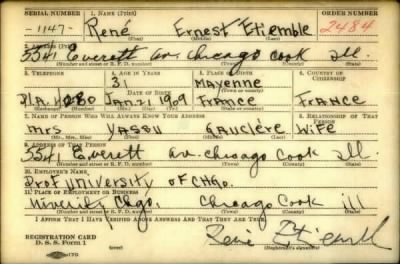 SERIAL NUMBER 1. NAME (Print) ORDER NUMBER
-1147- René Ernest Etiemble 2484
(First) (Middle) (Last)
2. ADDRESS (Print)
5541 Everett av. Chicago Cook Ill.
(Number and street or R. F. D. number) (Town) (County) (State)
3. TELEPHONE 4. AGE IN YEARS 5. PLACE OF BIRTH 6. COUNTRY OF CITIZENSHIP
31 Mayenne
DATE OF BIRTH (Town or county)
Jan. 21 1909 France France
(Exchange) (Number) (Mo.) (Day) (Yr.) (State or country)
7. NAME OF PERSON WHO WILL ALWAYS KNOW YOUR ADDRESS 8. RELATIONSHIP OF THAT PERSON
Mrs Yassu Gauclère Wife
(Mr., Mrs., Miss) (First) (Middle) (Last)
9. ADDRESS OF THAT PERSON
5541 Everett av. Chicago Cook Ill.
(Number and street or R. F. D. number) (Town) (County) (State)
10. EMPLOYER'S NAME
Prof University of CHgo.
11. PLACE OF EMPLOYMENT OR BUSINESS
Chgo. Chicago Cook ill
(Number and street or R. F. D. number) (Town) (County) (State)
I AFFIRM THAT I HAVE VERIFIED ABOVE ANSWERS AND THAT THEY ARE TRUE.
REGISTRATION CARD
D. S. S. Form 1 René Etiemble
(Registrant's signature)